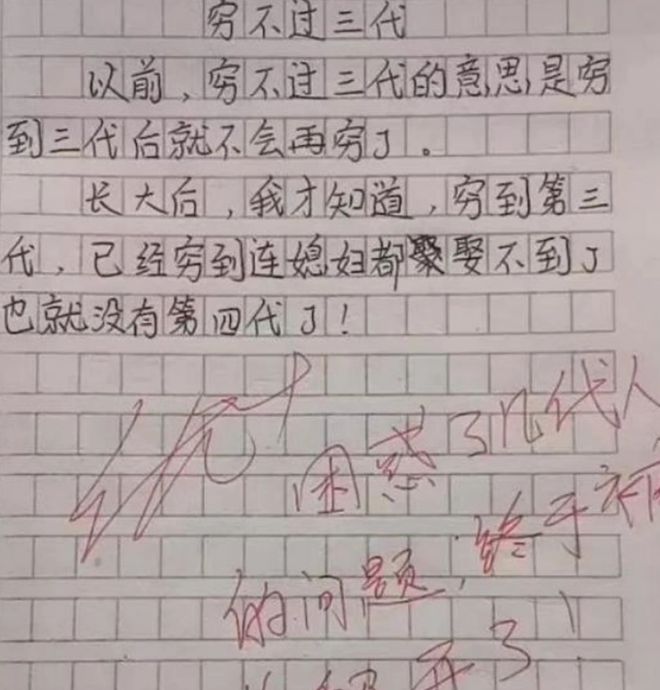 穷不过三代
以前，穷不过三代的意思是穷
到三代后就不会再穷了。
长大后，我才知道，穷到第三
代，已经穷到连媳妇都娶不到了
也就没有第四代了！
优+
困惑了几代人
的问题，终于被
解开了！